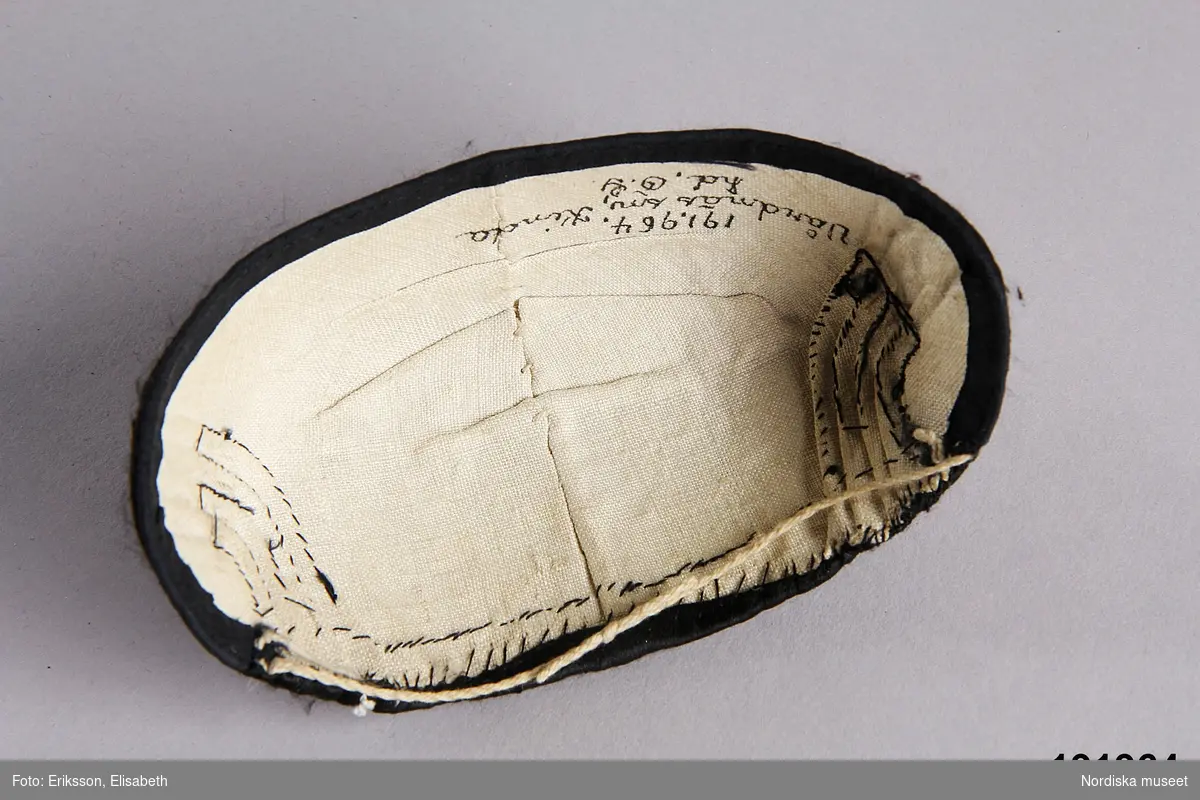 191964. Kinda
Vårdnäs sn,
hd. Ö.G.
191964
Foto: Eriksson, Elisabeth
Nordiska museet